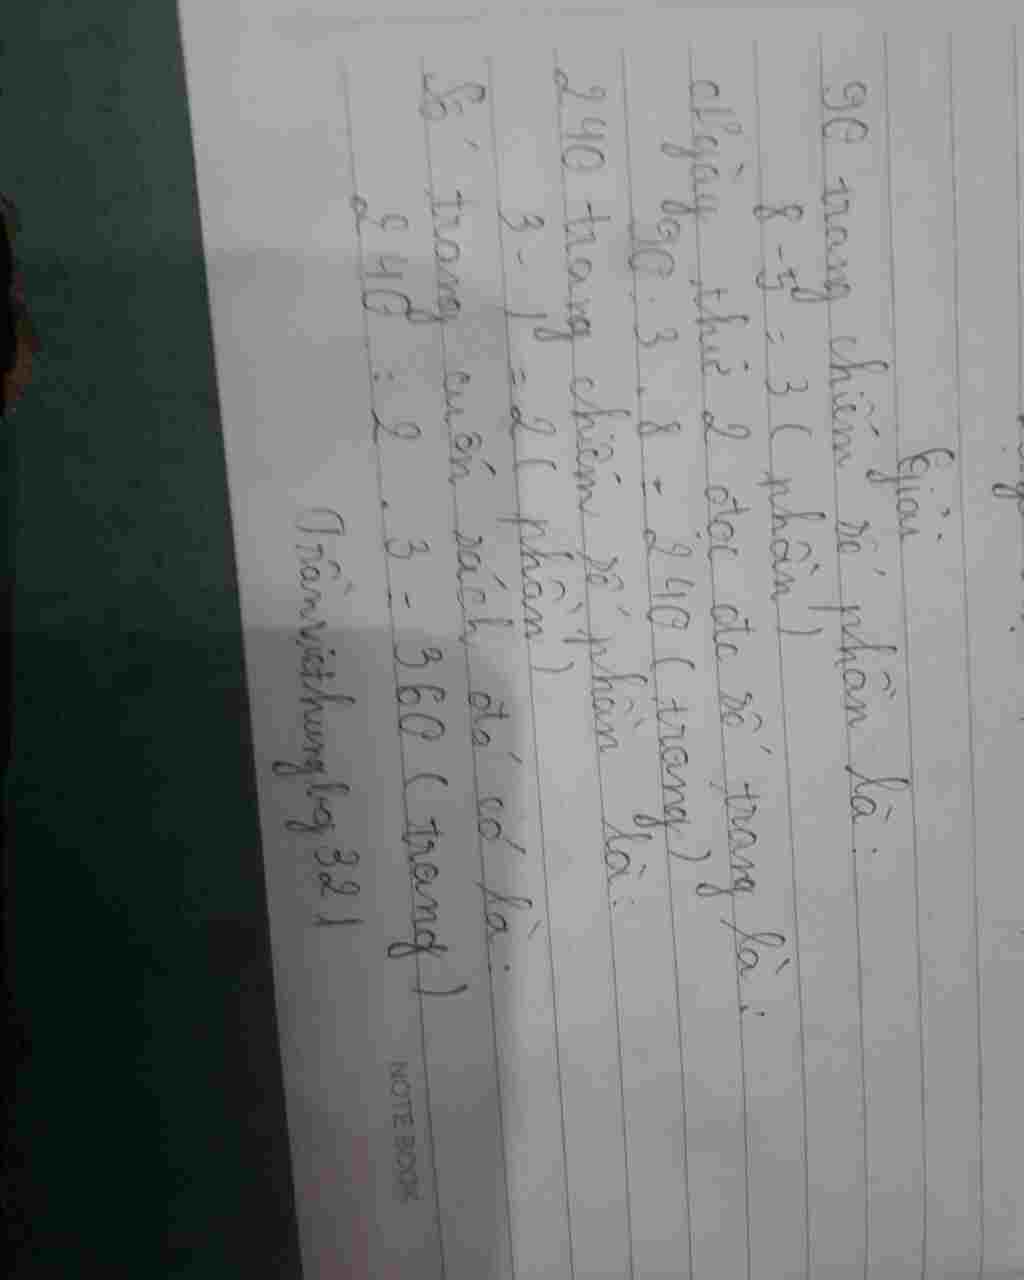 Giải
90 trang chiếm số phần là:
8 - 5 = 3 ( phần )
Ngày thứ 2 đọc đc số trang là:
90 : 3 . 8 = 240 ( trang )
240 trang chiếm số phần là:
3 - 1 = 2 ( phần )
Số trang cuốn sách đó có là:
240 : 2 . 3 = 360 ( trang )
Trânviethungbg321
NOTE BOOK